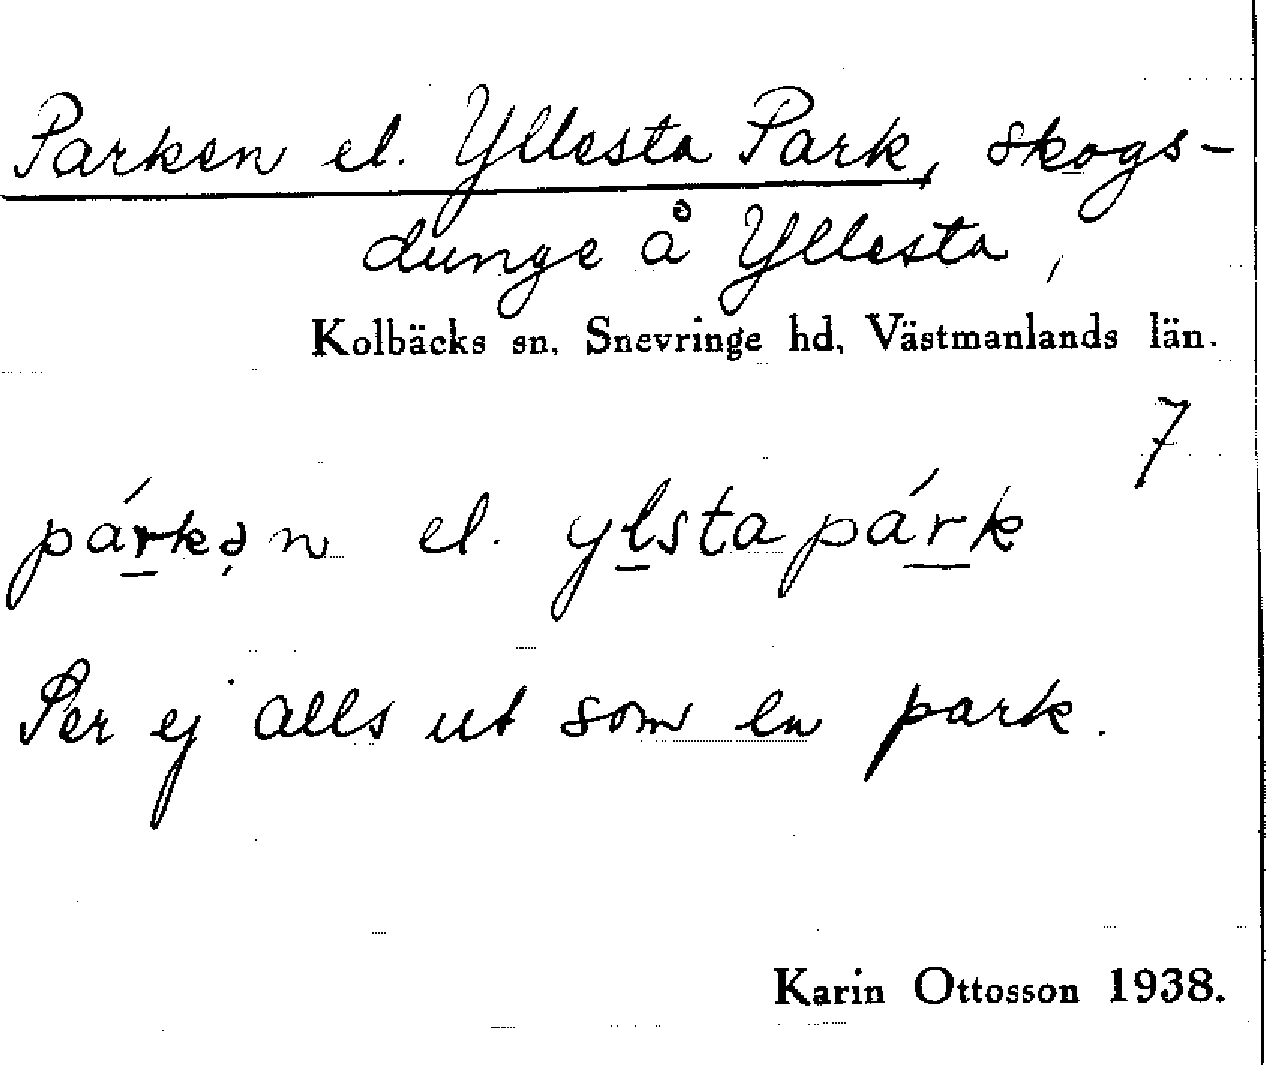 Parken el. Yllesta Park, skogs-
dunge å Yllesta,
Kolbäcks sn, Snevringe hd, Västmanlands län.
7
párkən el. ylstapárk
Ser ej alls ut som en park.
Karin Ottosson 1938.